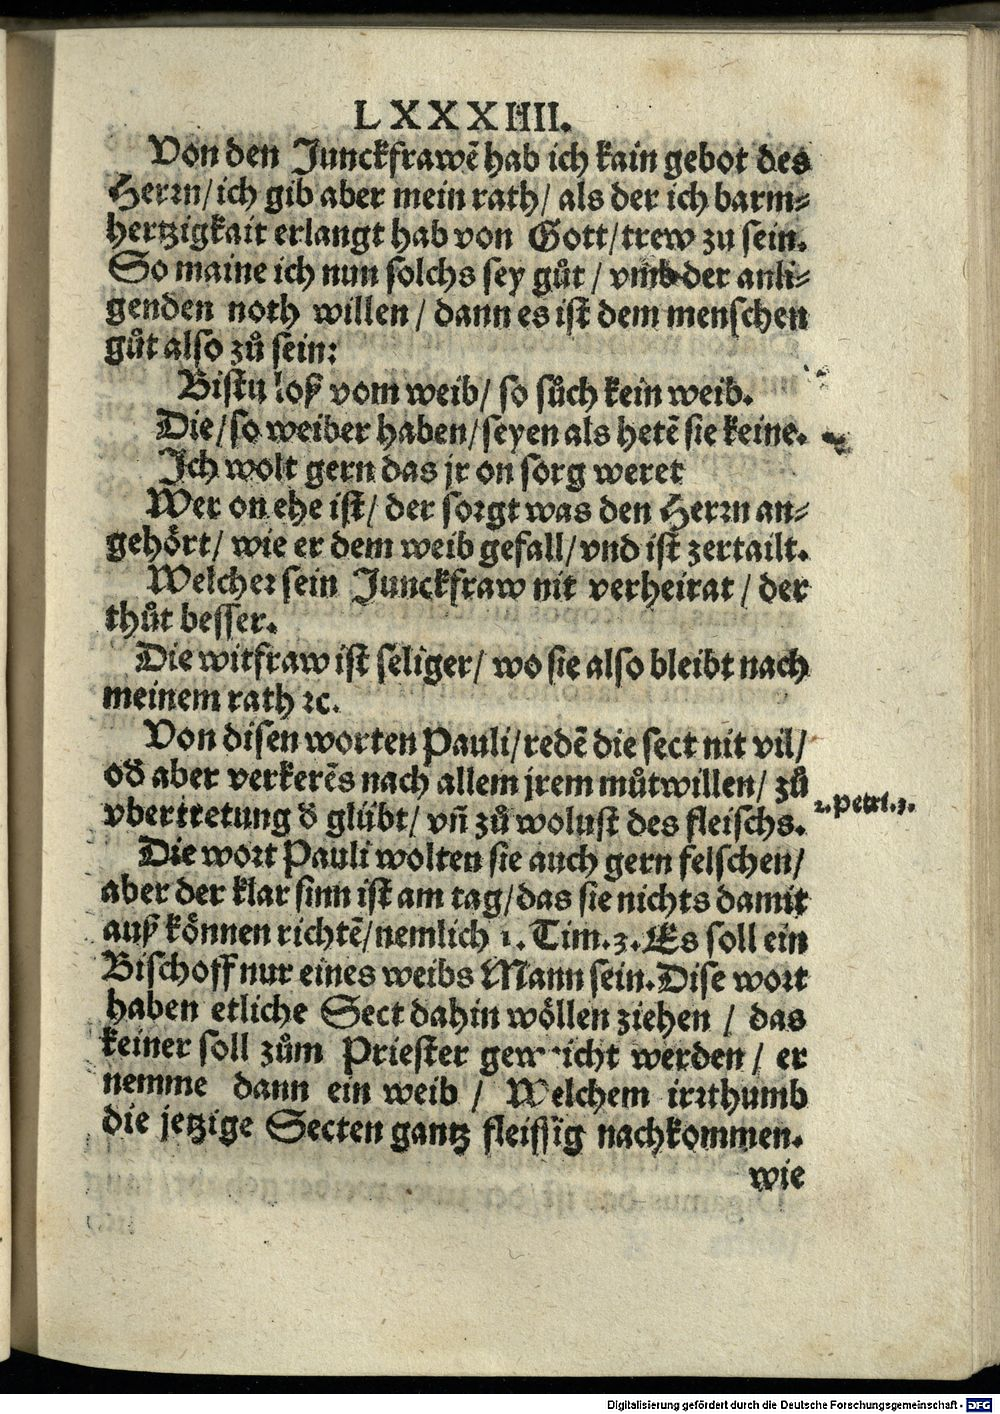 LXXXIIII.
Von den Junckfrawē hab ich kain gebot des
Herrn/ ich gib aber mein rath/ als der ich barm⸗
hertzigkait erlangt hab von Gott/ trew zu sein.
So maine ich nun solchs sey gůt / vmb der anli⸗
genden noth willen / dann es ist dem menschen
gůt also zů sein:
Bistu loß vom weib/ so sůch kein weib.
Die/ so weiber haben/ seyen als hetē sie keine.
Ich wolt gern das jr on sorg weret
Wer on ehe ist/ der sorgt was den Herrn an⸗
gehört/ wie er dem weib gefall/ vnd ist zertailt.
Welcher sein Junckfraw nit verheirat / der
thůt besser.
Die witfraw ist seliger/ wo sie also bleibt nach
meinem rath ꝛc.
Von disen worten Pauli/ redē die sect nit vil/
od̄ aber verkerēs nach allem jrem můtwillen/ zů
vbertretung d̄ glübt/ vñ zů wolust des fleischs.
2. Petri. 3.
Die wort Pauli wolten sie auch gern felschen/
aber der klar sinn ist am tag/ das sie nichts damit
auß können richtē/ nemlich 1. Tim. 3. Es soll ein
Bischoff nur eines weibs Mann sein. Dise wort
haben etliche Sect dahin wöllen ziehen / das
keiner soll zům Priester gew icht werden / er
nemme dann ein weib / Welchem irrthumb
die jetzige Secten gantz fleissig nachkommen.
wie
Digitalisierung gefördert durch die Deutsche Forschungsgemeinschaft - DFG